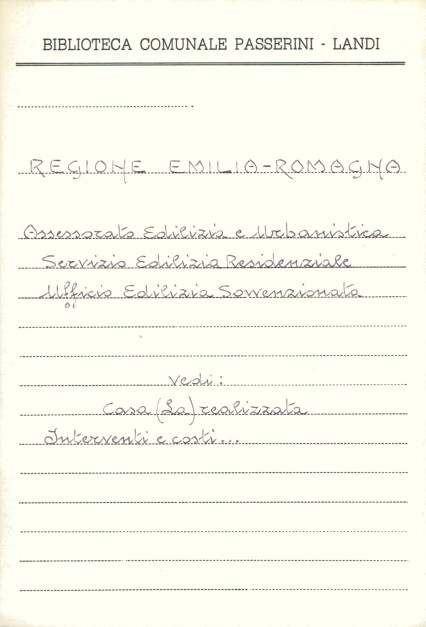 BIBLIOTECA COMUNALE PASSERINI - LANDI
REGIONE EMILIA-ROMAGNA
Assessorato Edilizia e Urbanistica
Servizio Edilizia Residenziale
Ufficio Edilizia Sovvenzionata
vedi:
Casa (La) realizzata
Interventi e costi...